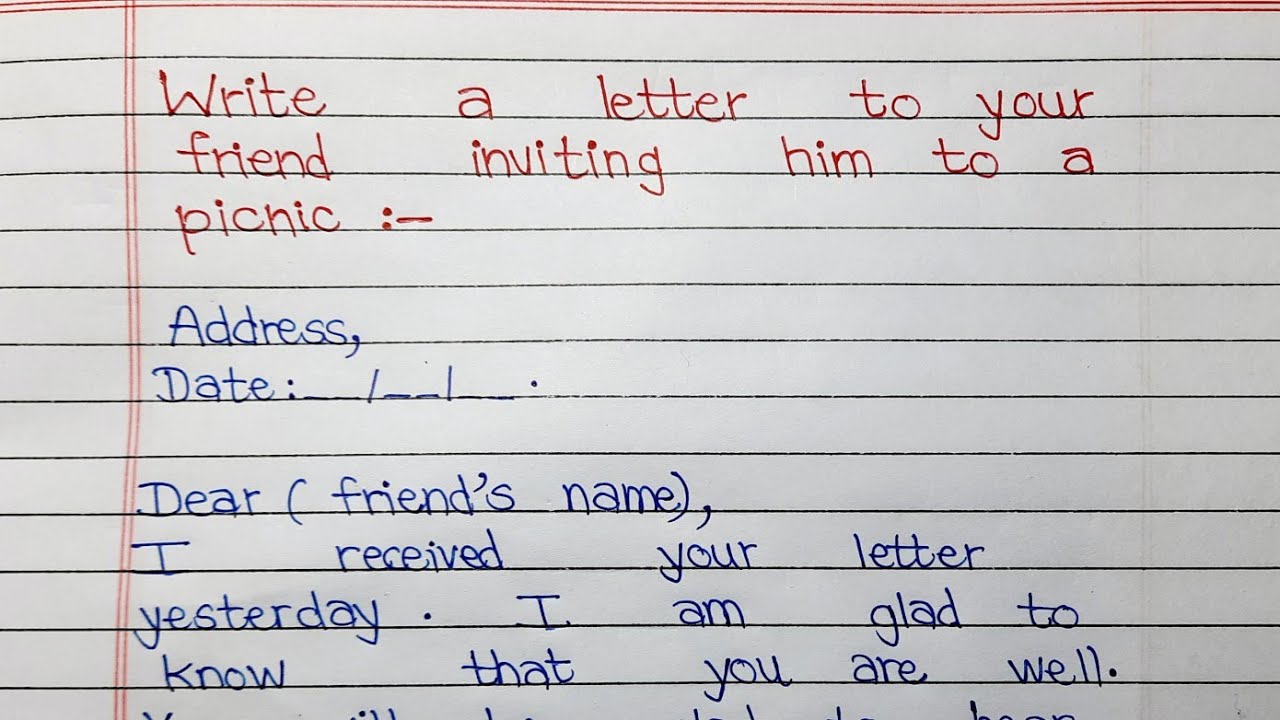 Write a letter to your
friend inviting him to a
picnic :-
Address,
Date:__/__/__.
Dear ( friend's name),
I received your letter
yesterday. I am glad to
know that you are well.